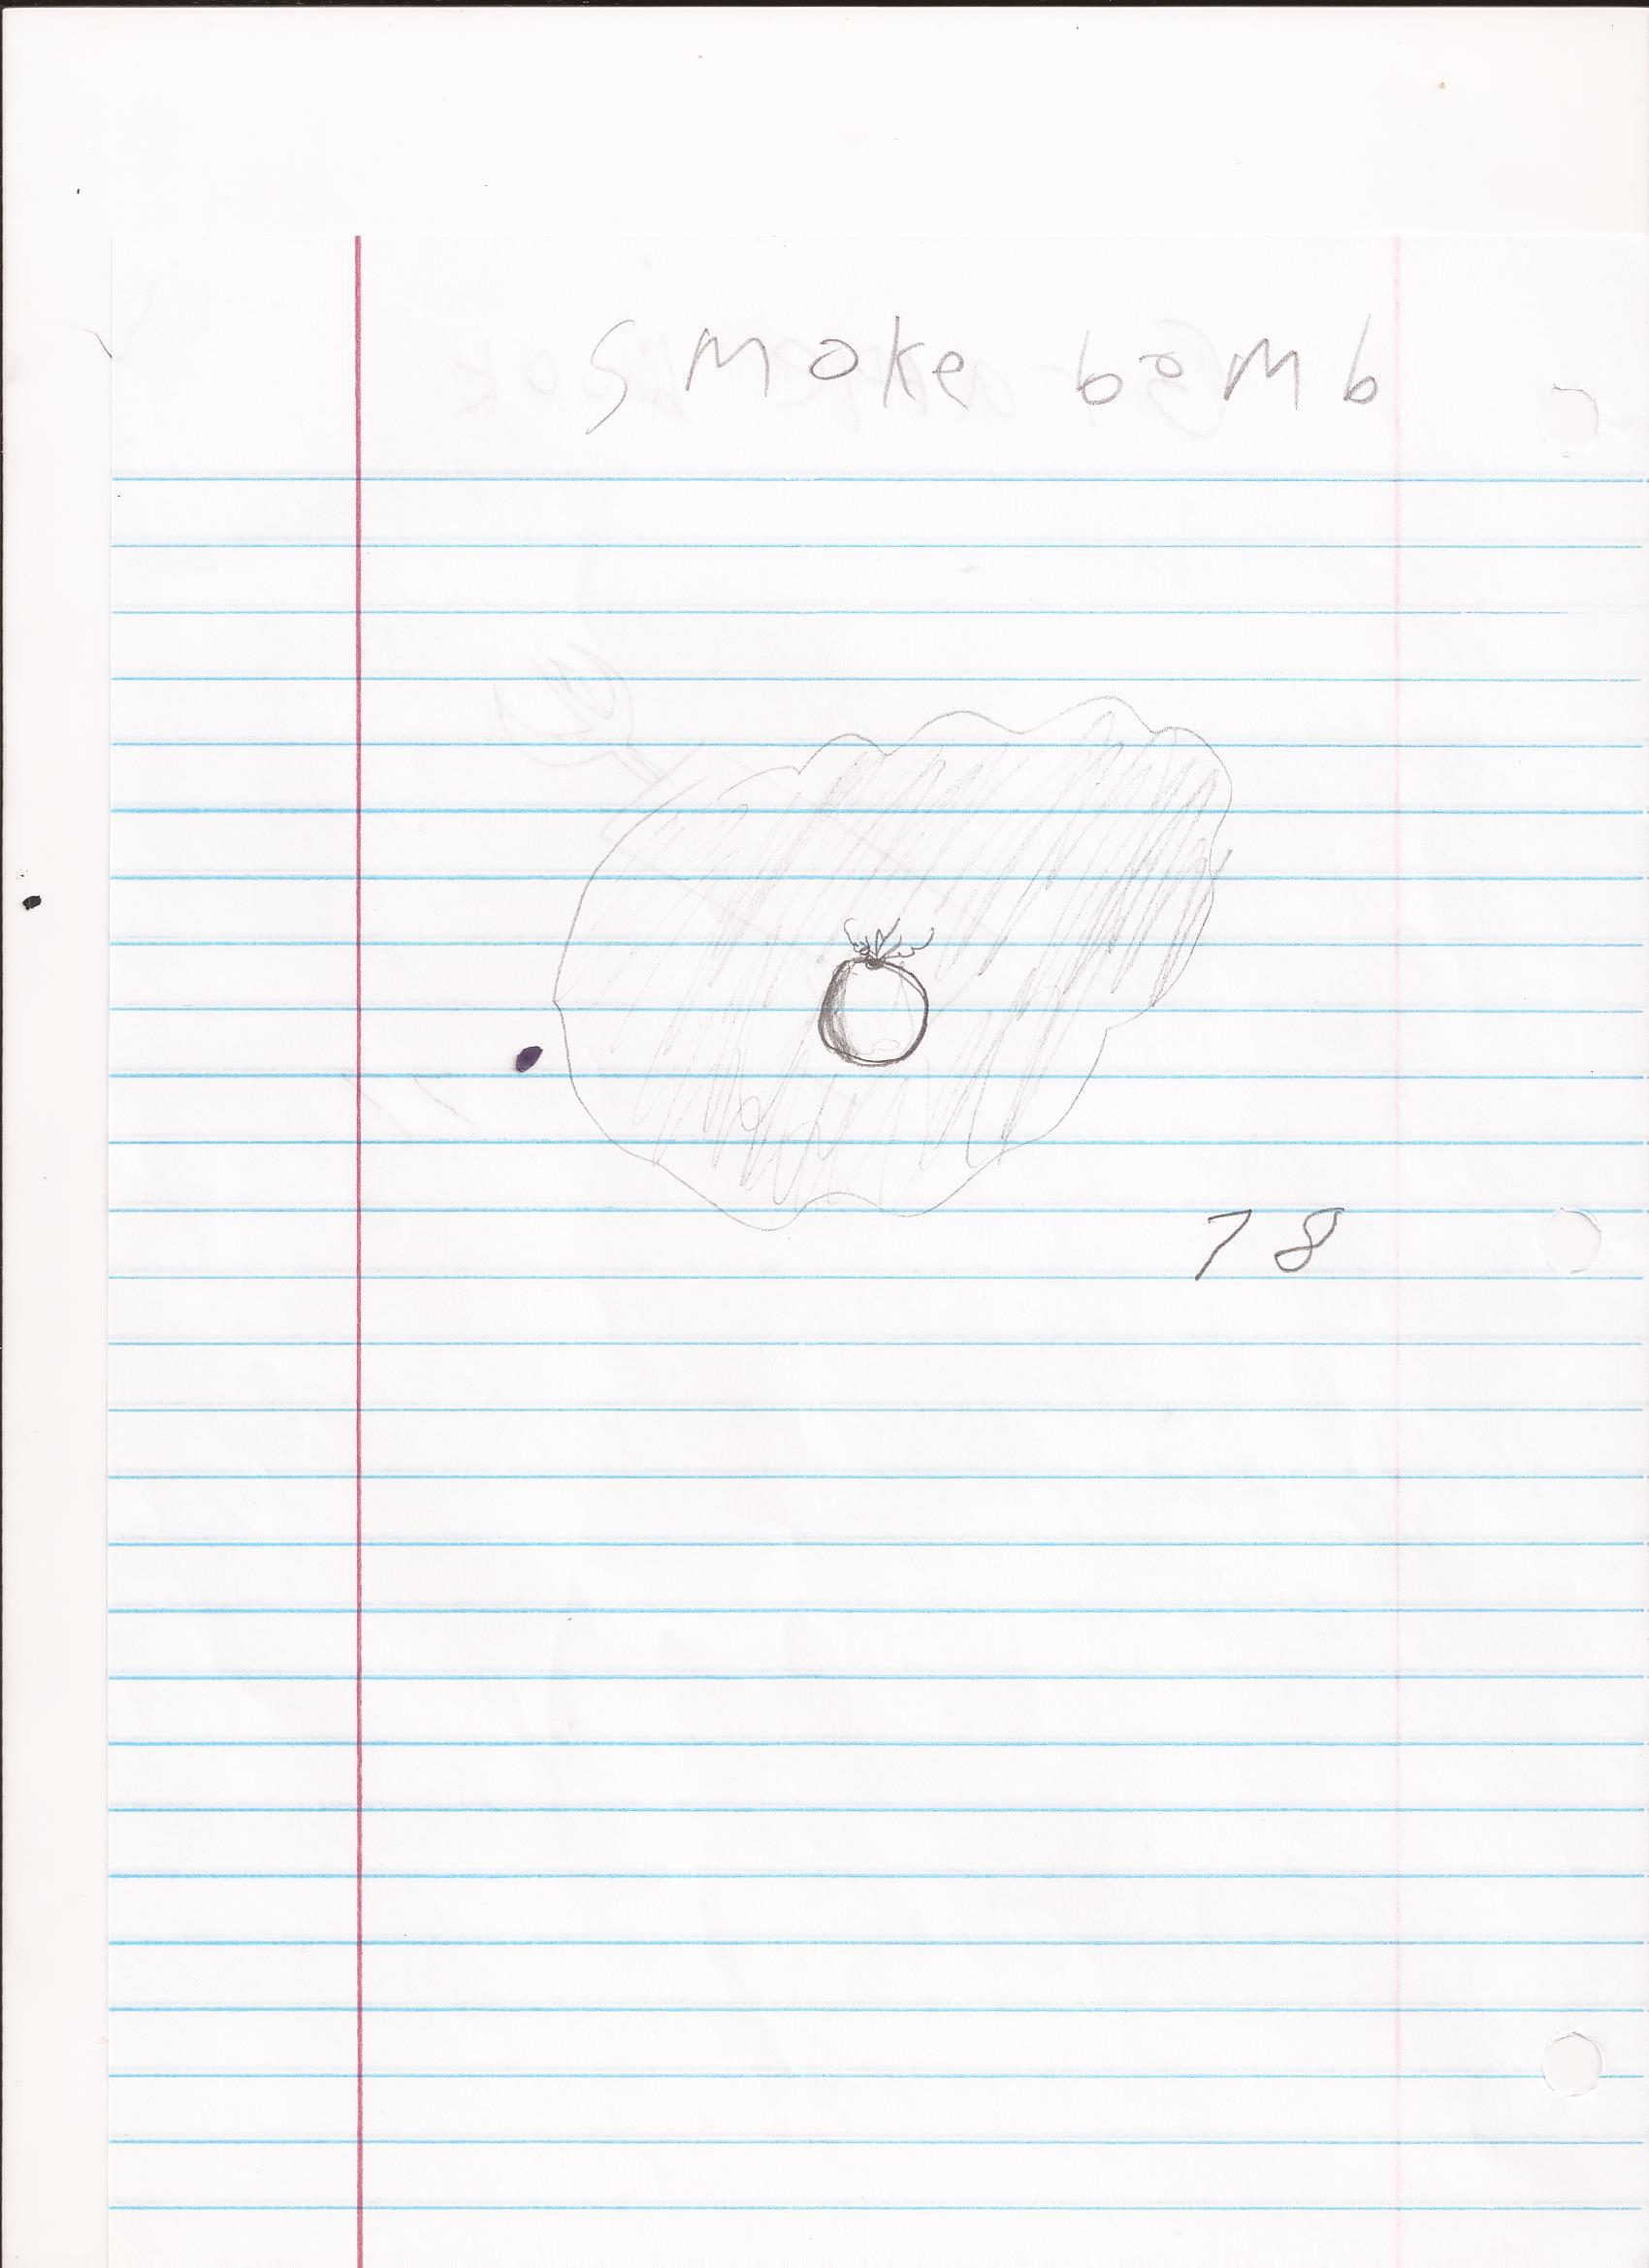 smoke bomb
78